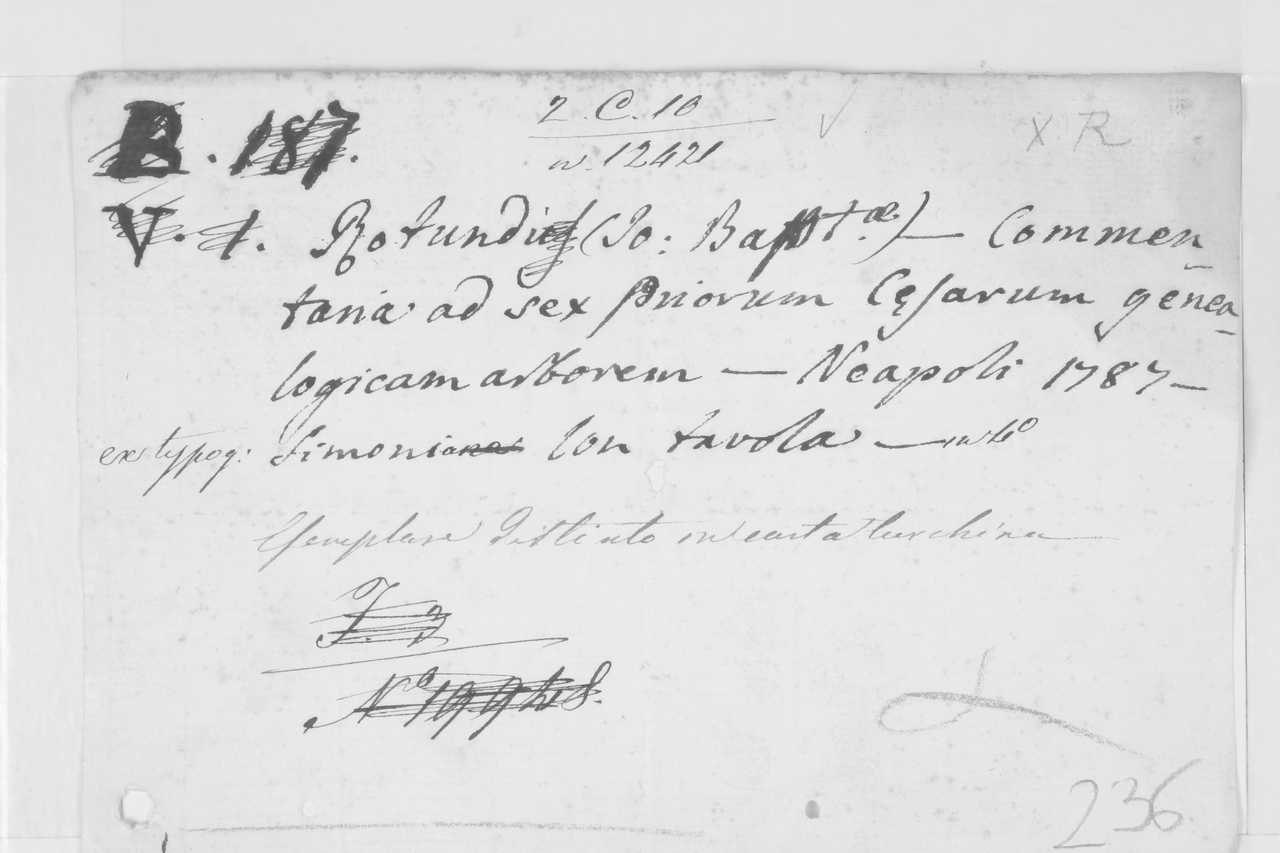 B. 187.
2. C. 10
n. 12421
X R
V. 1. Rotundi (Jo: Baptæ.) — Commen
taria ad sex priorum Cęsarum genea
logicam arborem — Neapoli 1787 —
ex typog: Simoniana Con tavola — in 4º
Esemplare distinto in carta turchina —
F. 3
Nº 19948.
236